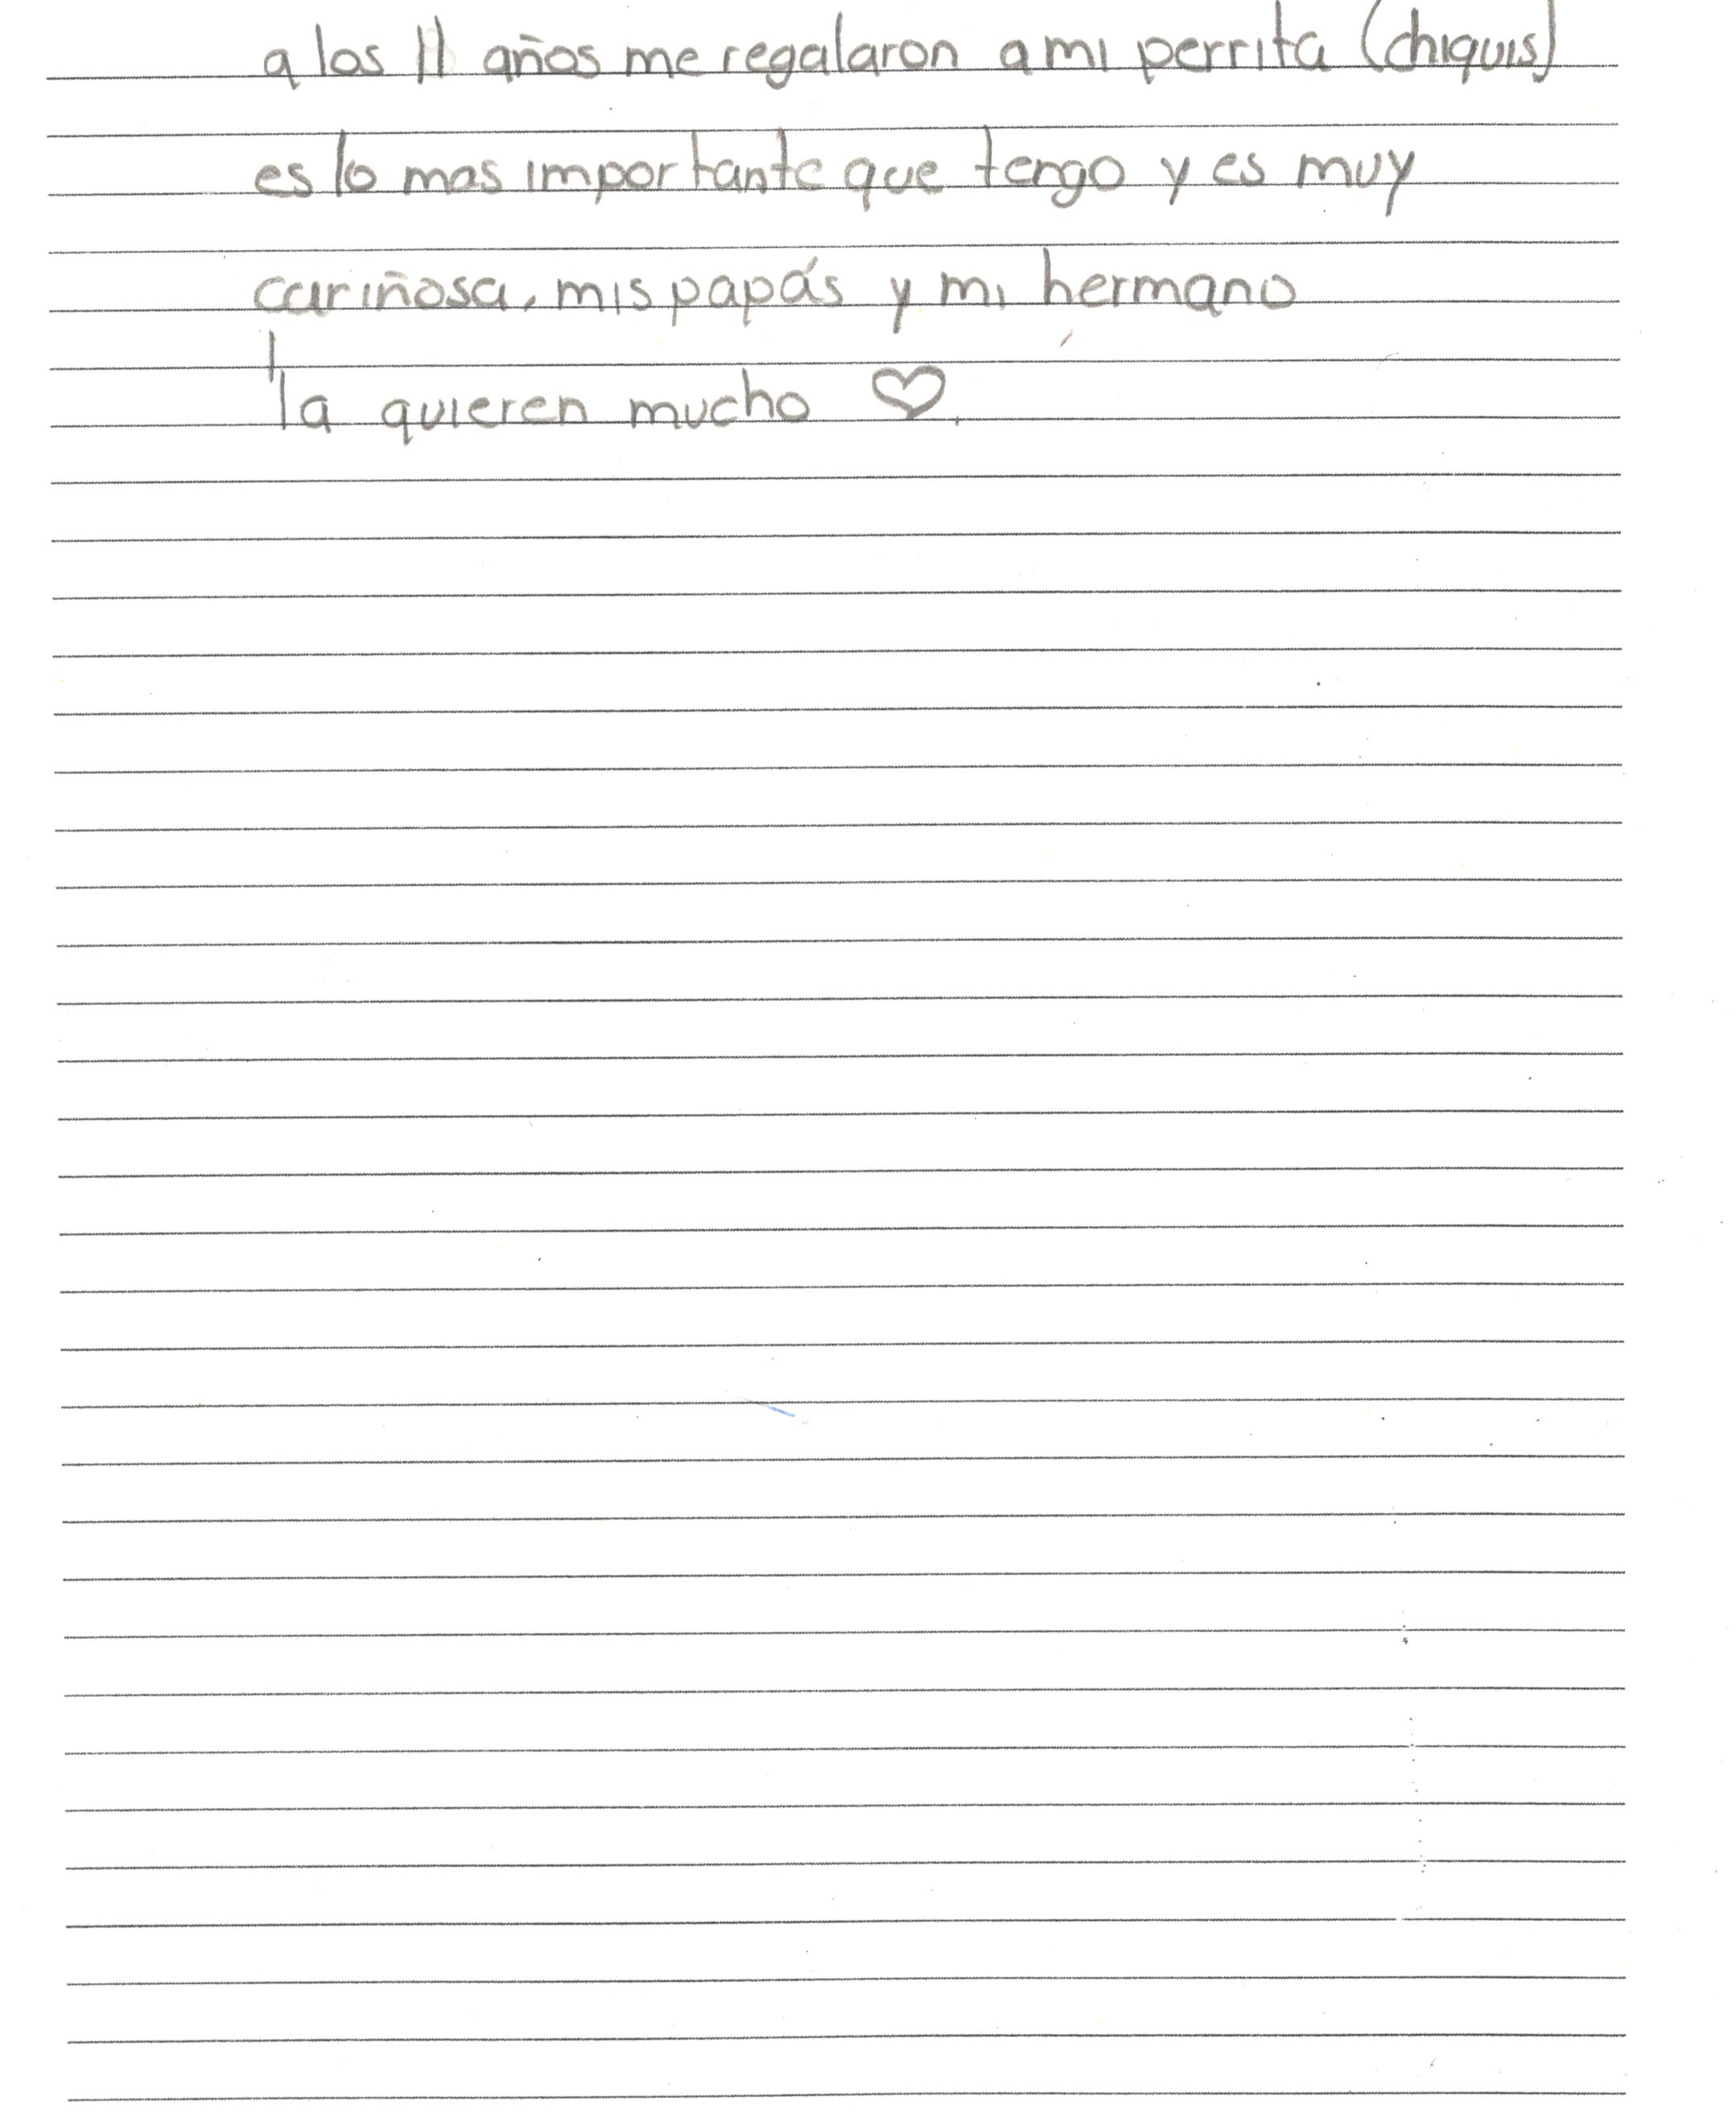 a los 11 años me regalaron a mi perrita (chiquis)
es lo mas importante que tengo y es muy
cariñosa, mis papás y mi hermano
la quieren mucho ♡.